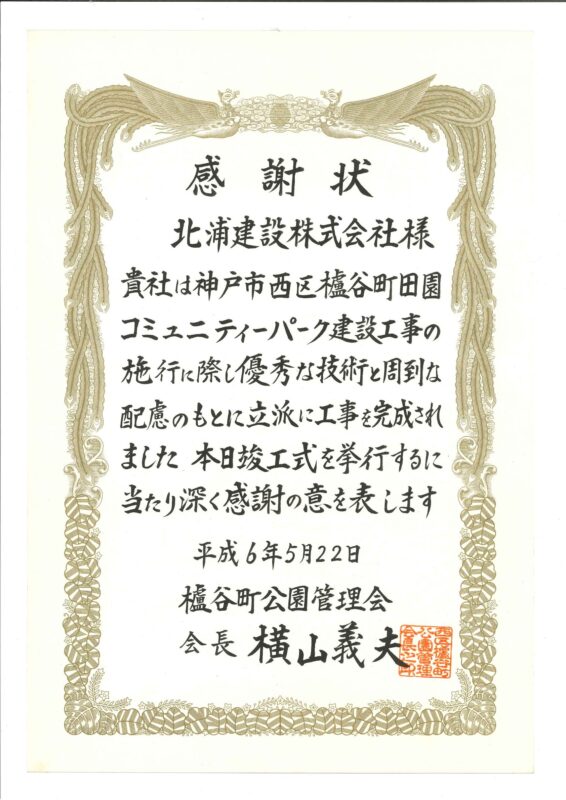 感謝状
北浦建設株式会社様
貴社は神戸市西区櫨谷町田園
コミュニティーパーク建設工事の
施行に際し優秀な技術と周到な
配慮のもとに立派に工事を完成され
ました 本日竣工式を挙行するに
当たり深く感謝の意を表します
平成6年5月22日
櫨谷町公園管理会
会長 横山義夫